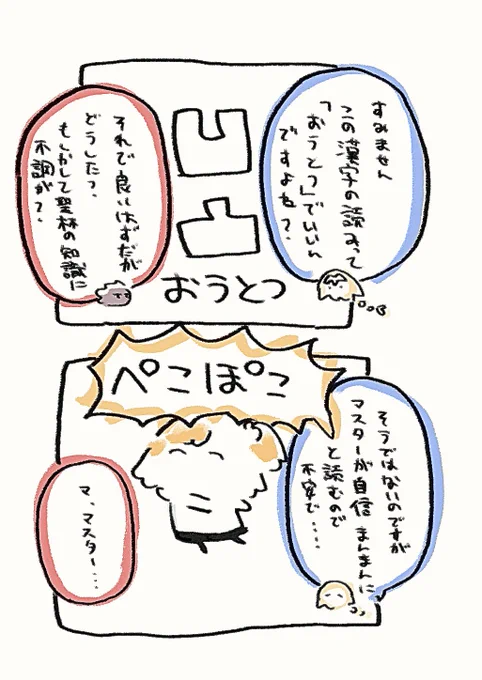 すみません
この漢字の読みって
「おうとつ」でいいん
ですよね?
凹
凸
おうとつ
それで良いはずだが
どうした?
もしかして聖杯の知識に
不調が?
ぺこぽこ
そうではないのですが
マスターが自信まんまんに
と読むので
不安で・・・・
マ、マスター・・・